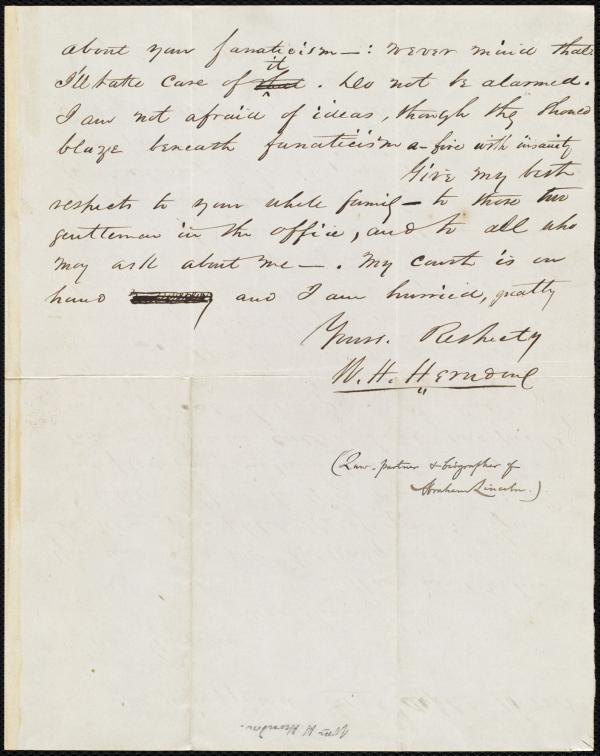 about your fanaticism — : never mind that
I'll take care of it that. Do not be alarmed.
I am not afraid of ideas, though they should
blaze beneath fanaticism a-fire with insanity
Give my best
respects to your whole family — to those two
gentlemen in the office, and to all who
may ask about me — . My court is on
hand and I am hurried, greatly
Yours. Respecty
W. H. Herndon
(Law-partner & biographer of
Abraham Lincoln.)
Wm H. Herndon.